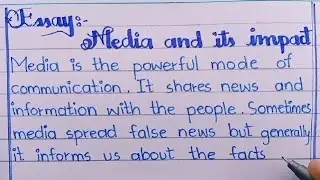 Essay:-
Media and its impact
Media is the powerful mode of
communication. It shares news and
information with the people. Sometimes
media spread false news but generally
it informs us about the facts